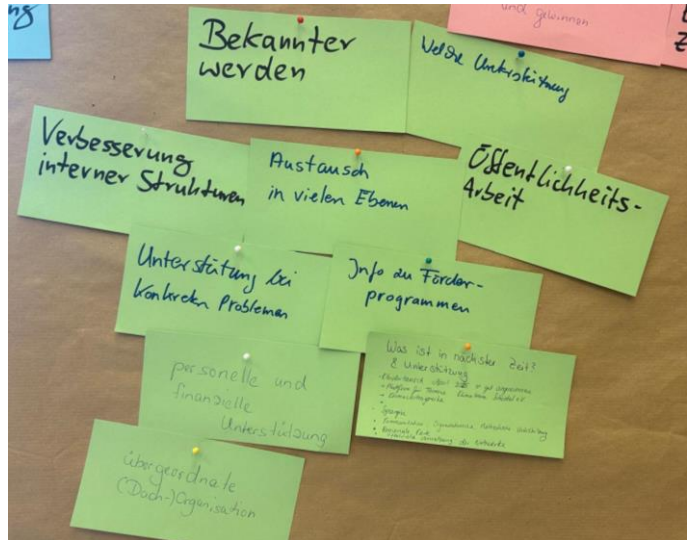 ng
und gewinnen
Bekannter
werden
Welche Unterstützung
Verbesserung
interner Strukturen
Austausch
in vielen Ebenen
Öffentlichkeits-
Arbeit
Unterstützung bei
konkreten Problemen
Info zu Förder-
programmen
personelle und
finanzielle
Unterstützung
Was ist in nächster Zeit?
& Unterstützung
übergeordnate
(Dach-)Organisation